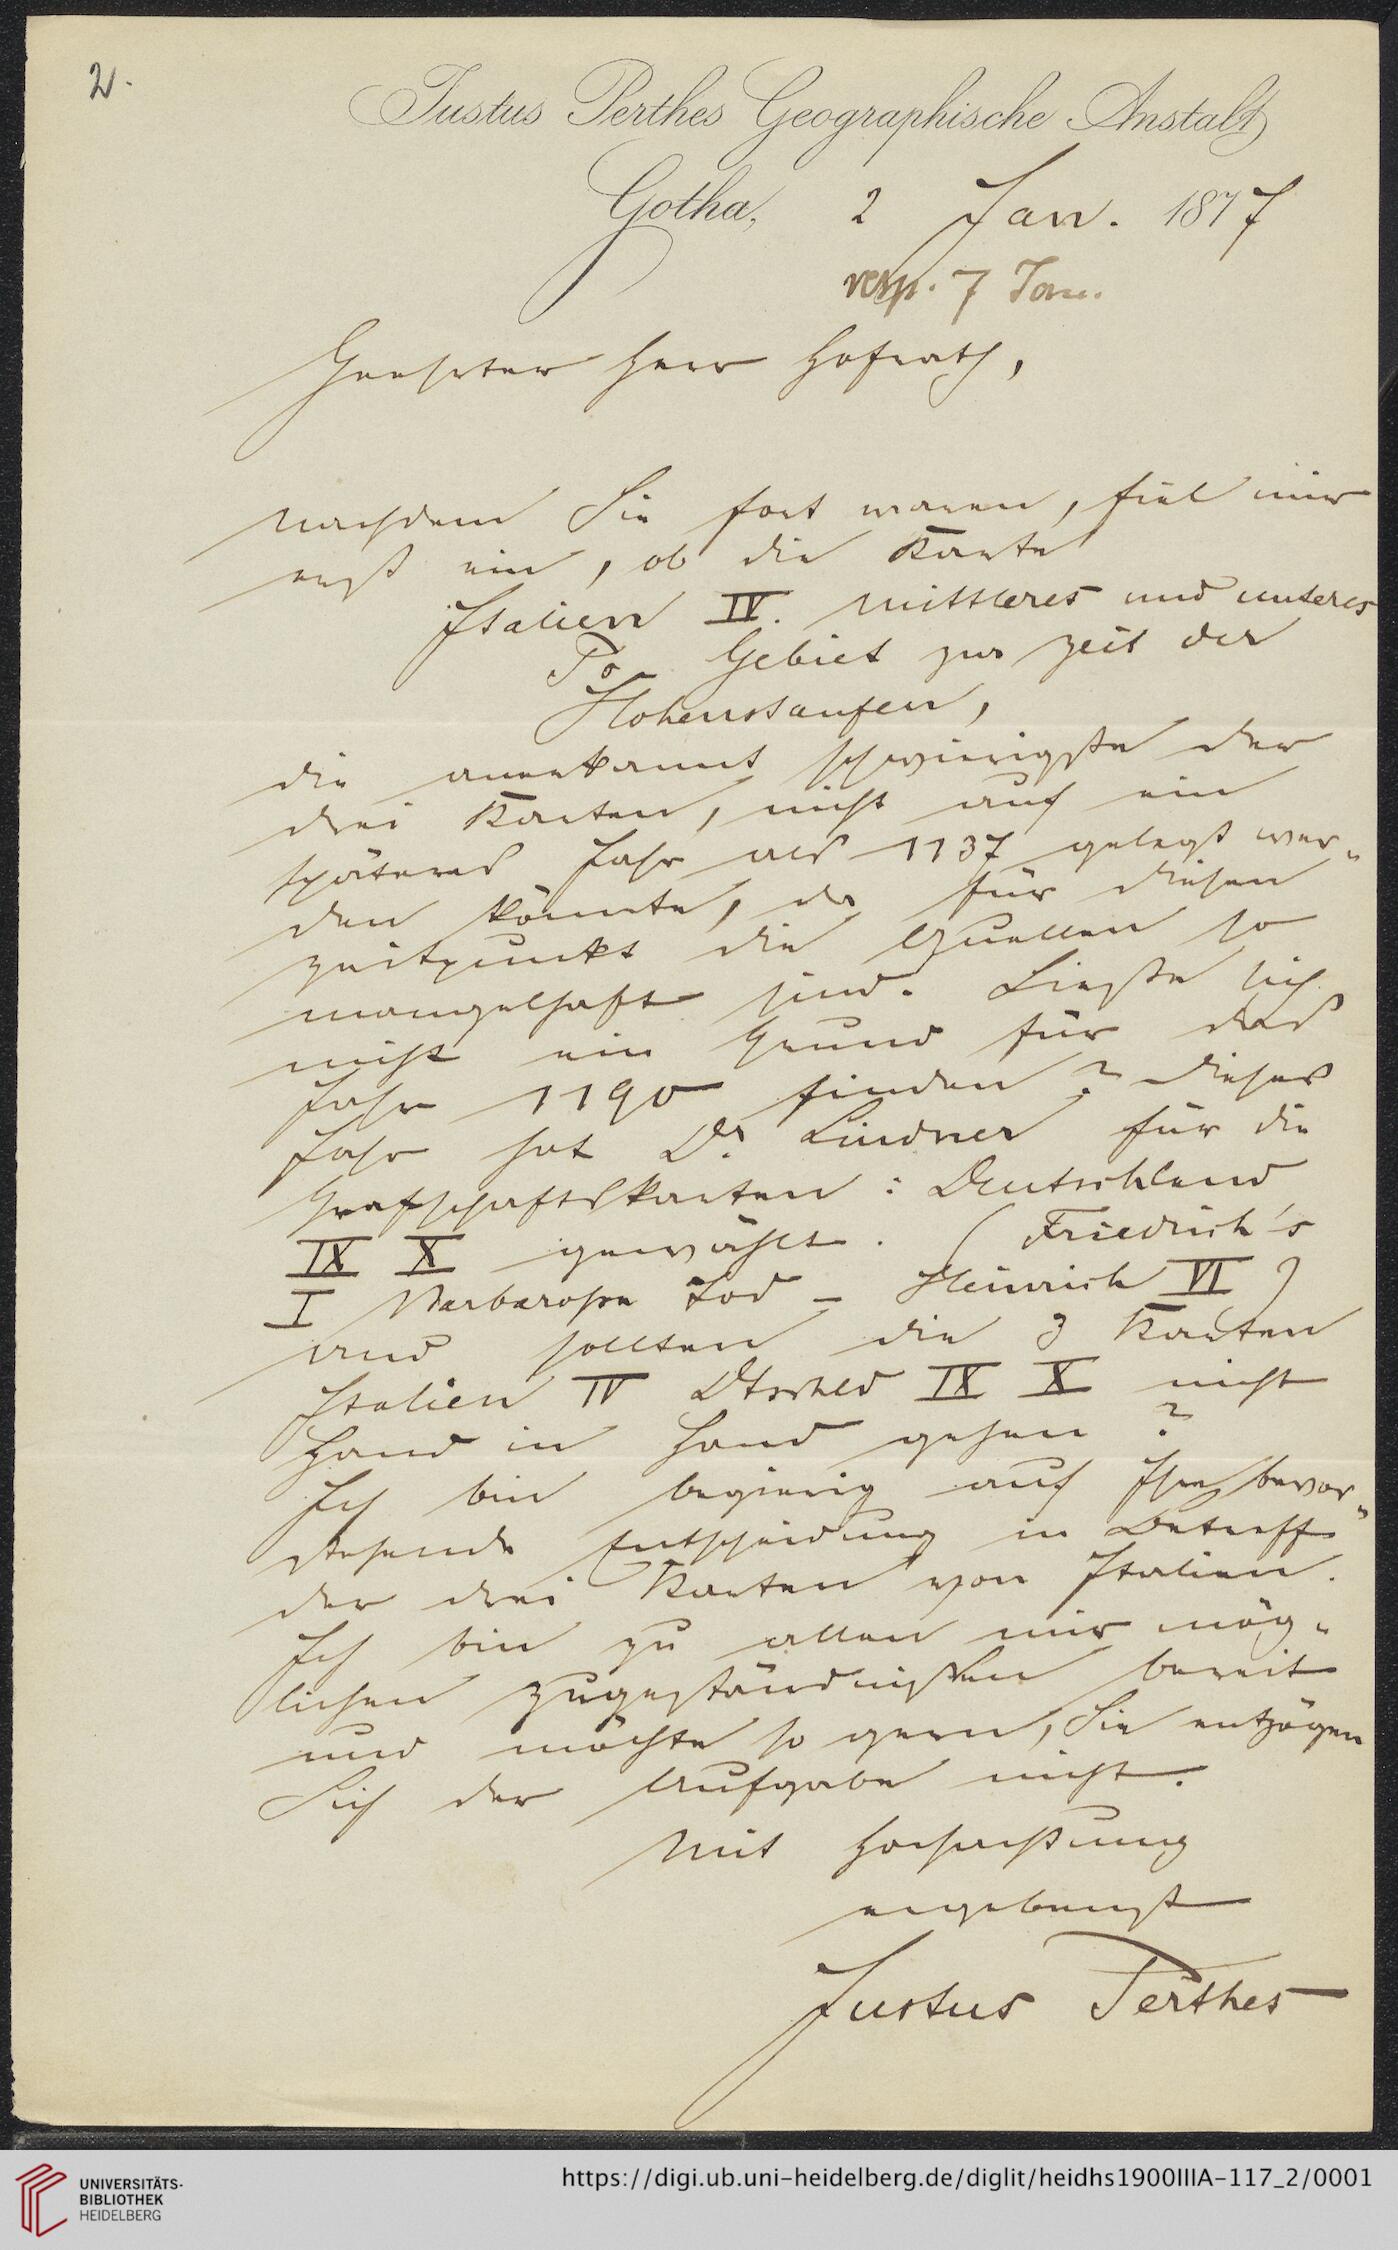 2.
Justus Perthes Geographische Anstalt
Gotha, 2 Jan. 1877
resp. 7 Jan.
Geehrter Herr Hofrath,
nachdem Sie fort waren, fiel mir
erst ein, ob die Karte
Italien IV. Mittleres und unteres
Po-Gebiet zur Zeit der
Hohenstaufen,
die anerkannt schwierigste der
drei Karten, nicht auf ein
späteres Jahr als 1137 gelegt wer-
den könnte, da für diesen
Zeitpunkt die Quellen so
mangelhaft sind. Ließe sich
nicht ein Grund für das
Jahr 1190 finden? dieses
Jahr hat Dr. Lindner für die
Grafschaftskarten: Deutschland
IX X gewählt. (Friedrich's
I Barbarossa Tod – Heinrich VI)
und sollten die 3 Karten
Italien IV Dtschld IX X nicht
Hand in Hand gehen?
Ich bin begierig auf Ihre bevor-
stehende Entscheidung in Betreff
der drei Karten von Italien.
Ich bin zu allen mir mög-
lichen Zugeständnißen bereit
und möchte so gern, Sie entzögen
Sich der Aufgabe nicht.
Mit Hochachtung
ergebenst
Justus Perthes
UNIVERSITÄTS-
BIBLIOTHEK
HEIDELBERG
https://digi.ub.uni-heidelberg.de/diglit/heidhs1900IIIA-117_2/0001